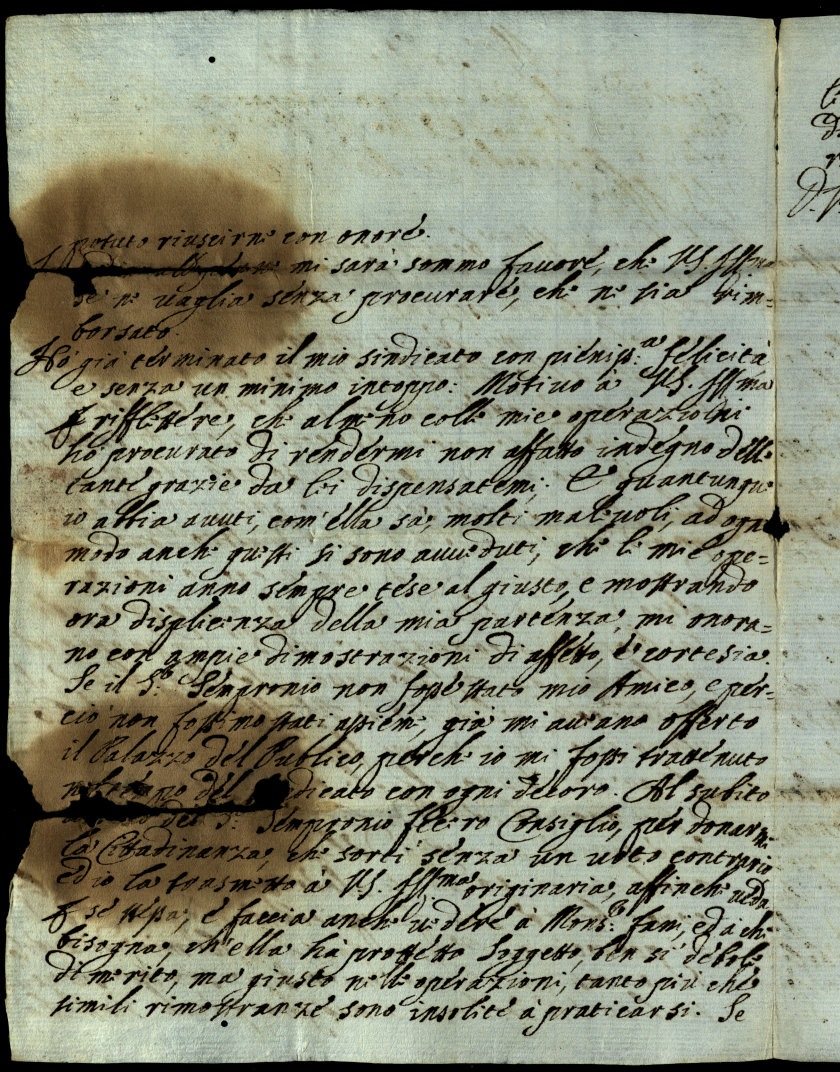 potuto riuscirne con onore.
mi sarà sommo favore, che VS. Illma
se ne vaglia senza procurare, che ne sia rim=
borsato.
Hò già terminato il mio sindicato con pieniss.a felicità
e senza un minimo intoppo: Motivo à VS. Illma
riflettere, che almeno colle mie operazioini
hò procurato di rendermi non affatto indegno delle
tante grazie da lei dispensatemi. E quantunque
io abbia avuti, com'ella sà, molti malevoli, ad ogni
modo anche questi si sono avveduti, che le mie ope=
razioni anno sempre tese al giusto, e mostrando
ora displicenza della mia partenza, mi onora=
no con ampie dimostrazioni di affetto, è cortesia.
Se il S.r Sempronio non fosse stato mio Amico, e per=
ciò non fossimo stati assieme, già mi aveano offerto
il Palazzo del Publico, perche io mi fossi trattenuto
nel tempo del Sindicato con ogni decoro. Al subito
del S.r Sempronio fecero Consiglio, per donarmi
la Cittadinanza, che sortì senza un voto contrario
ed io la trasmetto à VS. Illma originaria, affinche veda
se stessa, e faccia anche vedere à Mons.r Fani, ed a chi
bisogna, ch'ella hà protetto Soggetto, ben sì debole
di merito, ma giusto nelle operazioni, tanto più che
simili rimostranze sono insolite à praticarsi. Se